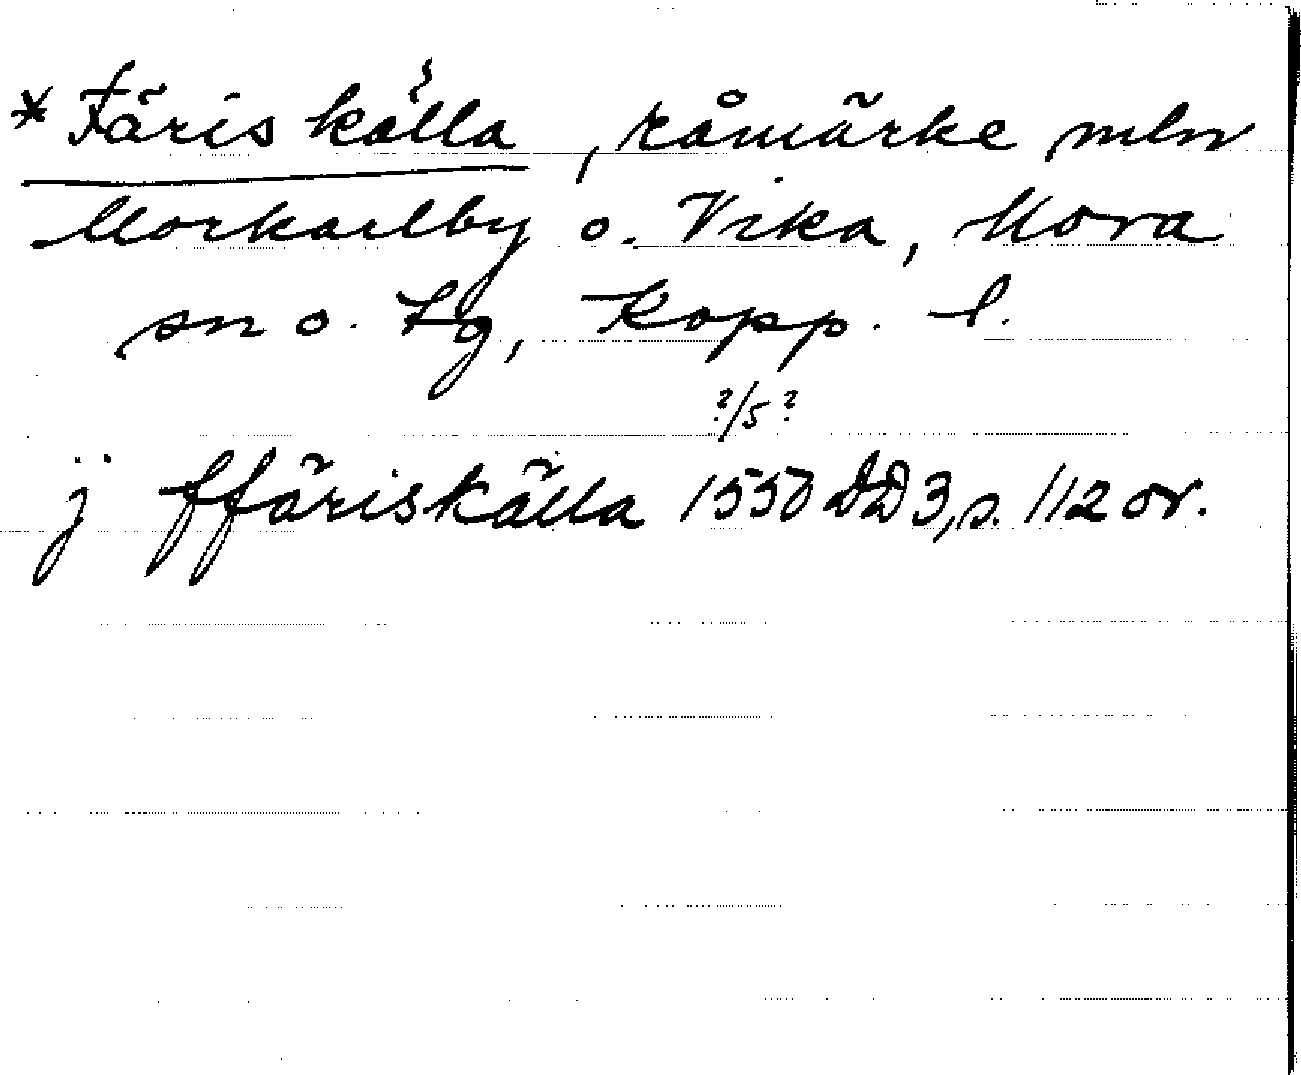 * Färiskälla, råmärke mln
Morkarlby o. Vika, Mora
sn o. tg, Kopp. l.
?/5 ?
j ffäriskälla 1550 DD 3, s. 112 or.